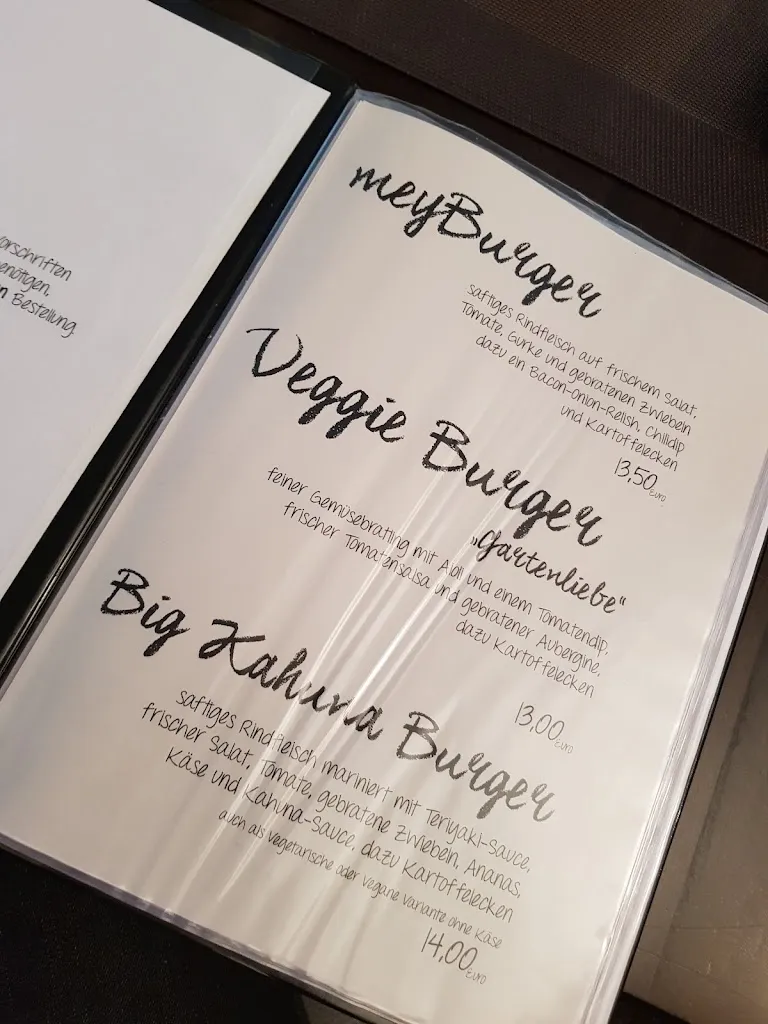 orschriften
enötigen,
n Bestellung
meyBurger
saftiges Rindfleisch auf frischem Salat,
Tomate, Gurke und gebratenen Zwiebeln
dazu ein Bacon-Onion-Relish, Chilidip
und Kartoffelecken
13,50 Euro
Veggie Burger
„Gartenliebe“
feiner Gemüsebratling mit Aioli und einem Tomatendip,
frischer Tomatensalsa und gebratener Aubergine,
dazu Kartoffelecken
13,00 Euro
Big Kahuna Burger
saftiges Rindfleisch mariniert mit Teriyaki-Sauce,
frischer Salat, Tomate, gebratene Zwiebeln, Ananas,
Käse und Kahuna-Sauce, dazu Kartoffelecken
auch als vegetarische oder vegane Variante ohne Käse
14,00 Euro